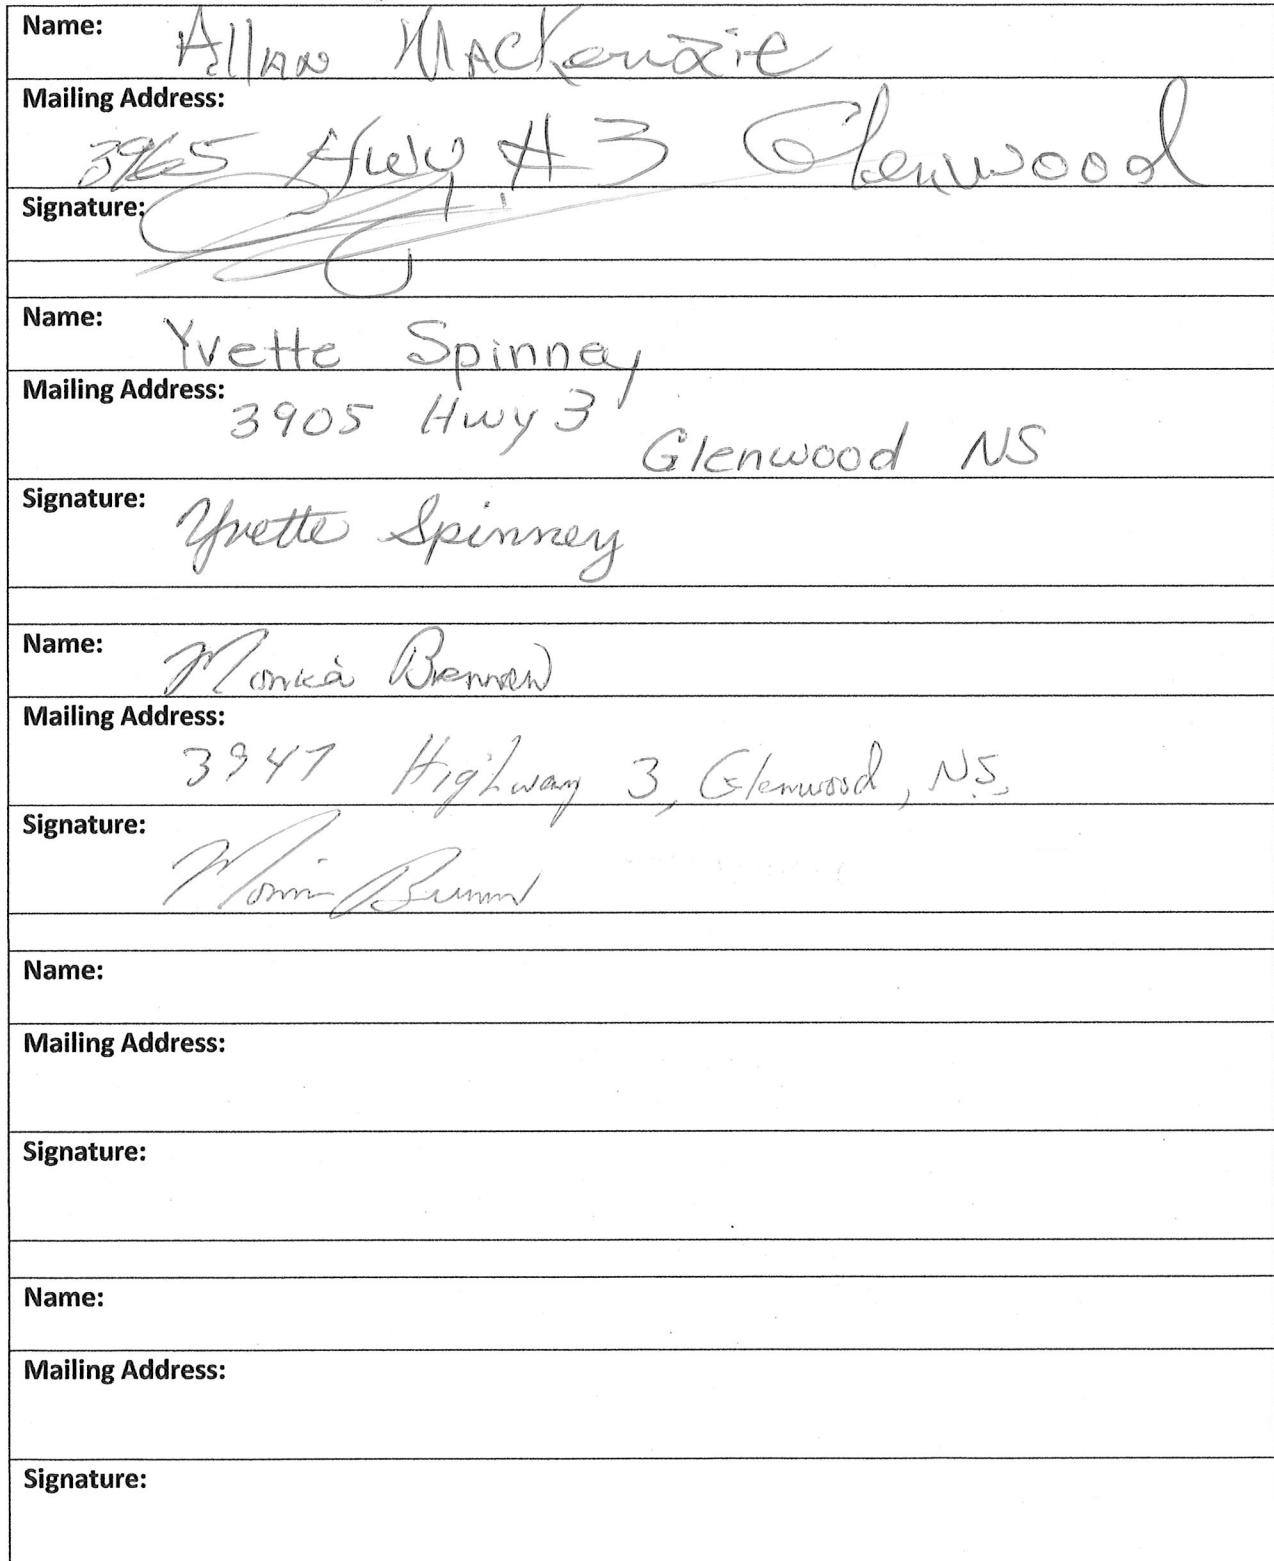 Name: Allan MacKenzie
Mailing Address:
3965 Hwy #3 Glenwood
Signature:
Name: Yvette Spinney
Mailing Address:
3905 Hwy 3
Glenwood NS
Signature: Yvette Spinney
Name: Monica Brennen
Mailing Address:
3947 Highway 3, Glenwood, N.S.
Signature:
Name:
Mailing Address:
Signature:
Name:
Mailing Address:
Signature: